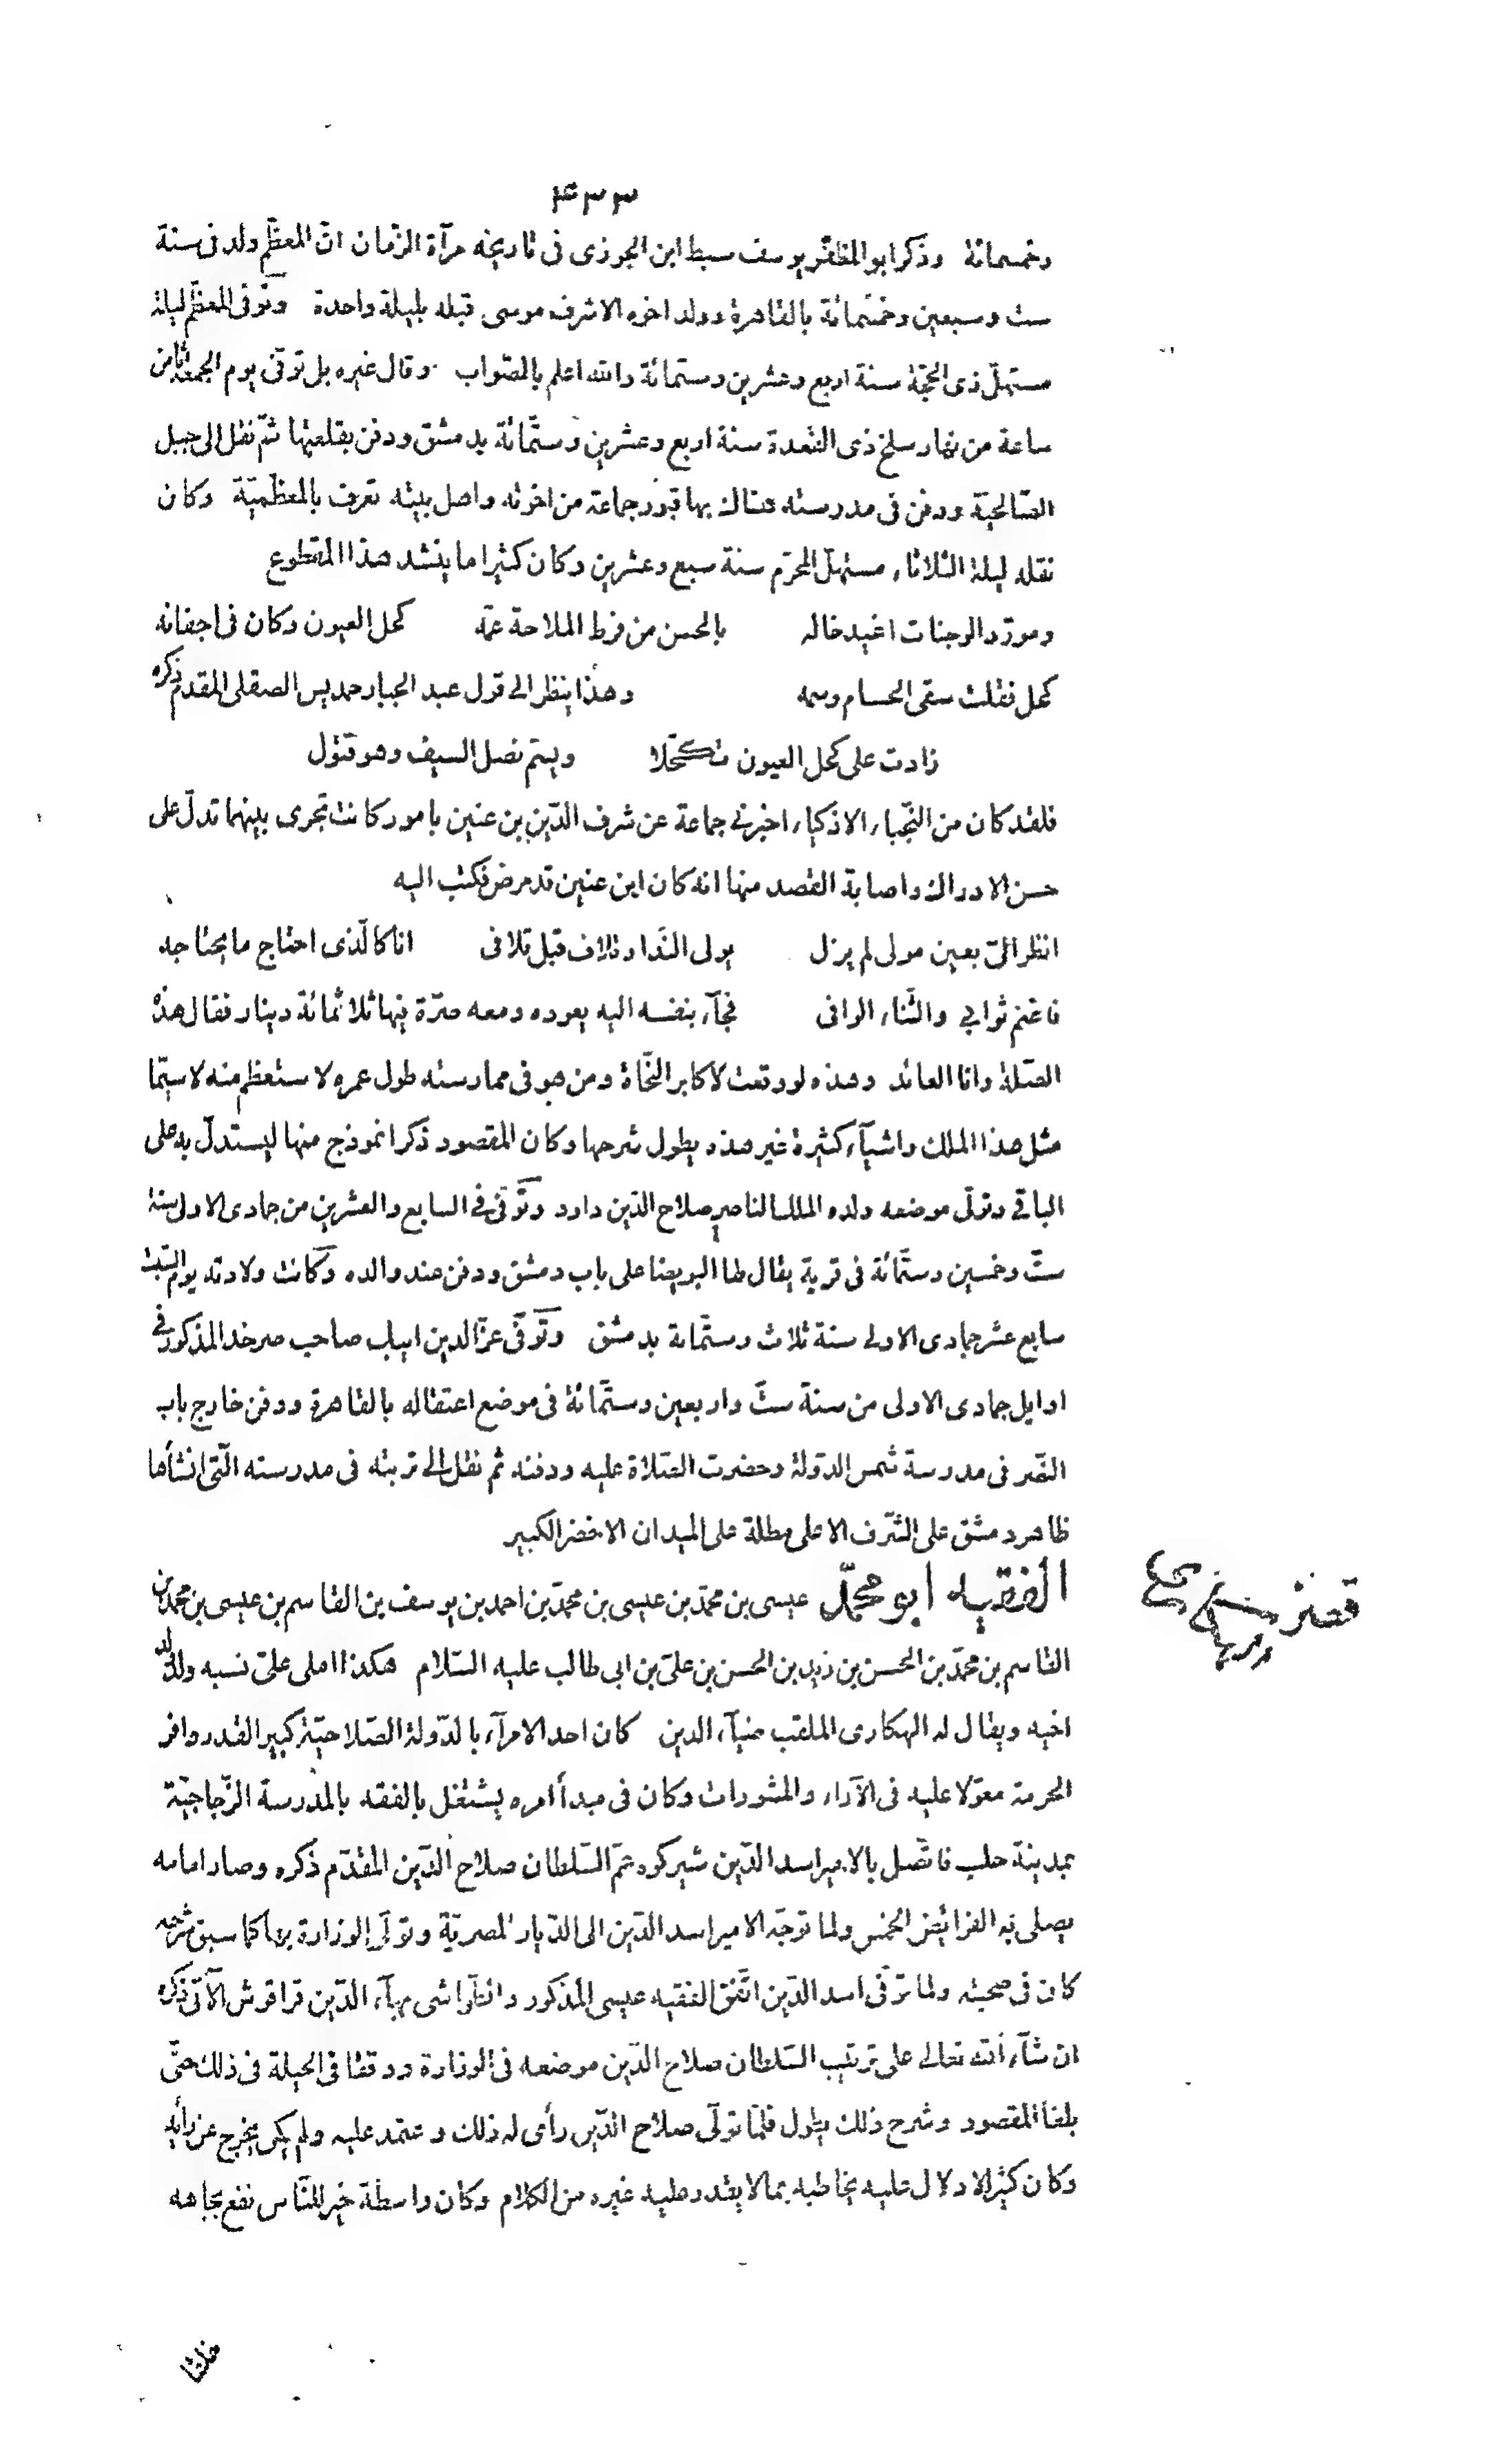 ۴۳۳
وخمسمائة وذكر ابو المظفّر يوسف سبط ابن الجوزى فى تاريخه مرآة الزّمان انّ المعظّم ولد فى سنة
ست وسبعين وخمسمائة بالقاهرة وولد اخوه الاشرف موسى قبله بليلة واحدة وتوفى المعظّم ليلة
مستهلّ ذى الحجّة سنة اربع وعشرين وستمائة والله اعلم بالصّواب وقال غيره بل توفّى يوم الجمعة ثامن
ساعة من نهار سلخ ذى القعدة سنة اربع وعشرين وستّمائة بدمشق ودفن بقلعتها ثمّ نقل الى جبل
الصّالحيّة ودفن فى مدرسته هناك بها قبور جماعة من اخوته واهل بيته تعرف بالمعظّميّة وكان
نقله ليلة الثلاثاء مستهلّ المحرّم سنة سبع وعشرين وكان كثيرا ما ينشد هذا المقطوع
ومورّد الوجنات اغيد خاله بالحسن من فرط الملاحة عمّه كحل العيون وكان فى اجفانه
كحل فقلت سقى الحسام وسمه وهذا ينظر الى قول عبد الجبار حمديس الصقلى المقدم ذكره
زادت على كحل العيون تكحّلا ويسمّ نصل السيف وهو قتول
فلقد كان من النّجباء الاذكياء اخبرنى جماعة عن شرف الدّين بن عنين بامور كانت تجرى بينهما تدلّ على
حسن الادراك واصابة القصد منها انه كان ابن عنين قد مرض فكتب اليه
انظر الىّ بعين مولى لم يزل يولى النّدا وتلاف قبل تلافى انا كالّذى احتاج ما يحتاجه
فاغنم ثوابى والثّناء الوافى فجآء بنفسه اليه يعوده ومعه صرّة فيها ثلاثمائة دينار فقال هذه
الصّلة وانا العائد وهذه لو وقعت لاكابر النّحاة ومن هو فى ممارسته طول عمره لاستعظم منه لا سيّما
مثل هذا الملك واشيآء كثيرة غير هذه يطول شرحها وكان المقصود ذكر انموذج منها ليستدلّ به على
الباقى وتولّى موضعه ولده الملك الناصر صلاح الدّين داود وتوّفى فى السابع والعشرين من جمادى الاول سنة
ستّ وخمسين وستّمائة فى قرية يقال لها البويضا على باب دمشق ودفن عند والده وكانت ولادته يوم السّبت
سابع عشر جمادى الاولى سنة ثلاث وستّمائة بدمشق وتوّفى عزّ الدين ايبك صاحب صرخد المذكور فى
اوايل جمادى الاولى من سنة ستّ واربعين وستّمائة فى موضع اعتقاله بالقاهرة ودفن خارج باب
النّصر فى مدرسة شمس الدّولة وحضرت الصّلاة عليه ودفنه ثم نقل الى تربته فى مدرسته الّتى انشأها
ظاهر دمشق على الشّرف الاعلى مطلة على الميدان الاخضر الكبير
الفقيه ابو محمّد عيسى بن محمّد بن عيسى بن محمّد بن احمد بن يوسف بن القاسم بن عيسى بن محمّد بن
القاسم بن محمّد بن الحسن بن زيد بن الحسن بن علىّ بن ابى طالب عليه السّلام هكذا املى علىّ نسبه ولد ولد
اخيه ويقال له الهكارى الملقب ضيآء الدين كان احد الامرآء بالدّولة الصّلاحيّة كبير القدر وافر
الحرمة معوّلا عليه فى الآراء والمشورات وكان فى مبدأ امره يشتغل بالفقه بالمدرسة الزّجاجيّة
بمدينة حلب فاتّصل بالامير اسد الدّين شيركوه عمّ السّلطان صلاح الدّين المقدّم ذكره وصار امامه
يصلى به الفرائض الخمس ولما توجّه الامير اسد الدّين الى الدّيار المصريّة وتولّى الوزارة بها كما سبق شرحه
كان فى صحبته ولما توّفى اسد الدّين اتّفق الفقيه عيسى المذكور والطّواشى بهآء الدّين قراقوش الآتى ذكره
ان شآء الله تعالى على ترتيب السّلطان صلاح الدّين موضعه فى الوزارة ودققا فى الحيلة فى ذلك حتّى
بلغا المقصود وشرح ذلك يطول فلمّا تولّى صلاح الدّين رأى له ذلك واعتمد عليه ولم يكن يخرج عن رأيه
وكان كثير الادلال عليه يخاطبه بما لا يقدر عليه غيره من الكلام وكان واسطة خير للنّاس نفع بجاهه
خلقا